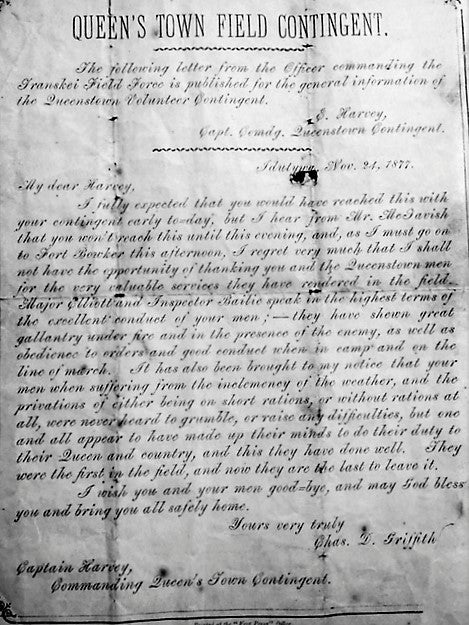 QUEEN'S TOWN FIELD CONTINGENT.
The following letter from the Officer commanding the
Transkei Field Force is published for the general information of
the Queenstown Volunteer Contingent.
E. Harvey,
Capt. Comdg. Queenstown Contingent.
Idutywa, Nov. 24, 1877.
My dear Harvey,
I fully expected that you would have reached this with
your contingent early to=day, but I hear from Mr. McTavish
that you won't reach this until this evening, and, as I must go on
to Fort Bowker this afternoon, I regret very much that I shall
not have the opportunity of thanking you and the Queenstown men
for the very valuable services they have rendered in the field.
Major Elliott and Inspector Bailie speak in the highest terms of
the excellent conduct of your men ;—they have shewn great
gallantry under fire and in the presence of the enemy, as well as
obedience to orders and good conduct when in camp and on the
line of march. It has also been brought to my notice that your
men when suffering from the inclemency of the weather, and the
privations of either being on short rations, or without rations at
all, were never heard to grumble, or raise any difficulties, but one
and all appear to have made up their minds to do their duty to
their Queen and country, and this they have done well. They
were the first in the field, and now they are the last to leave it.
I wish you and your men good=bye, and may God bless
you and bring you all safely home.
Yours very truly
Chas. D. Griffith
Captain Harvey,
Commanding Queen's Town Contingent.
at the "Free Press" Office